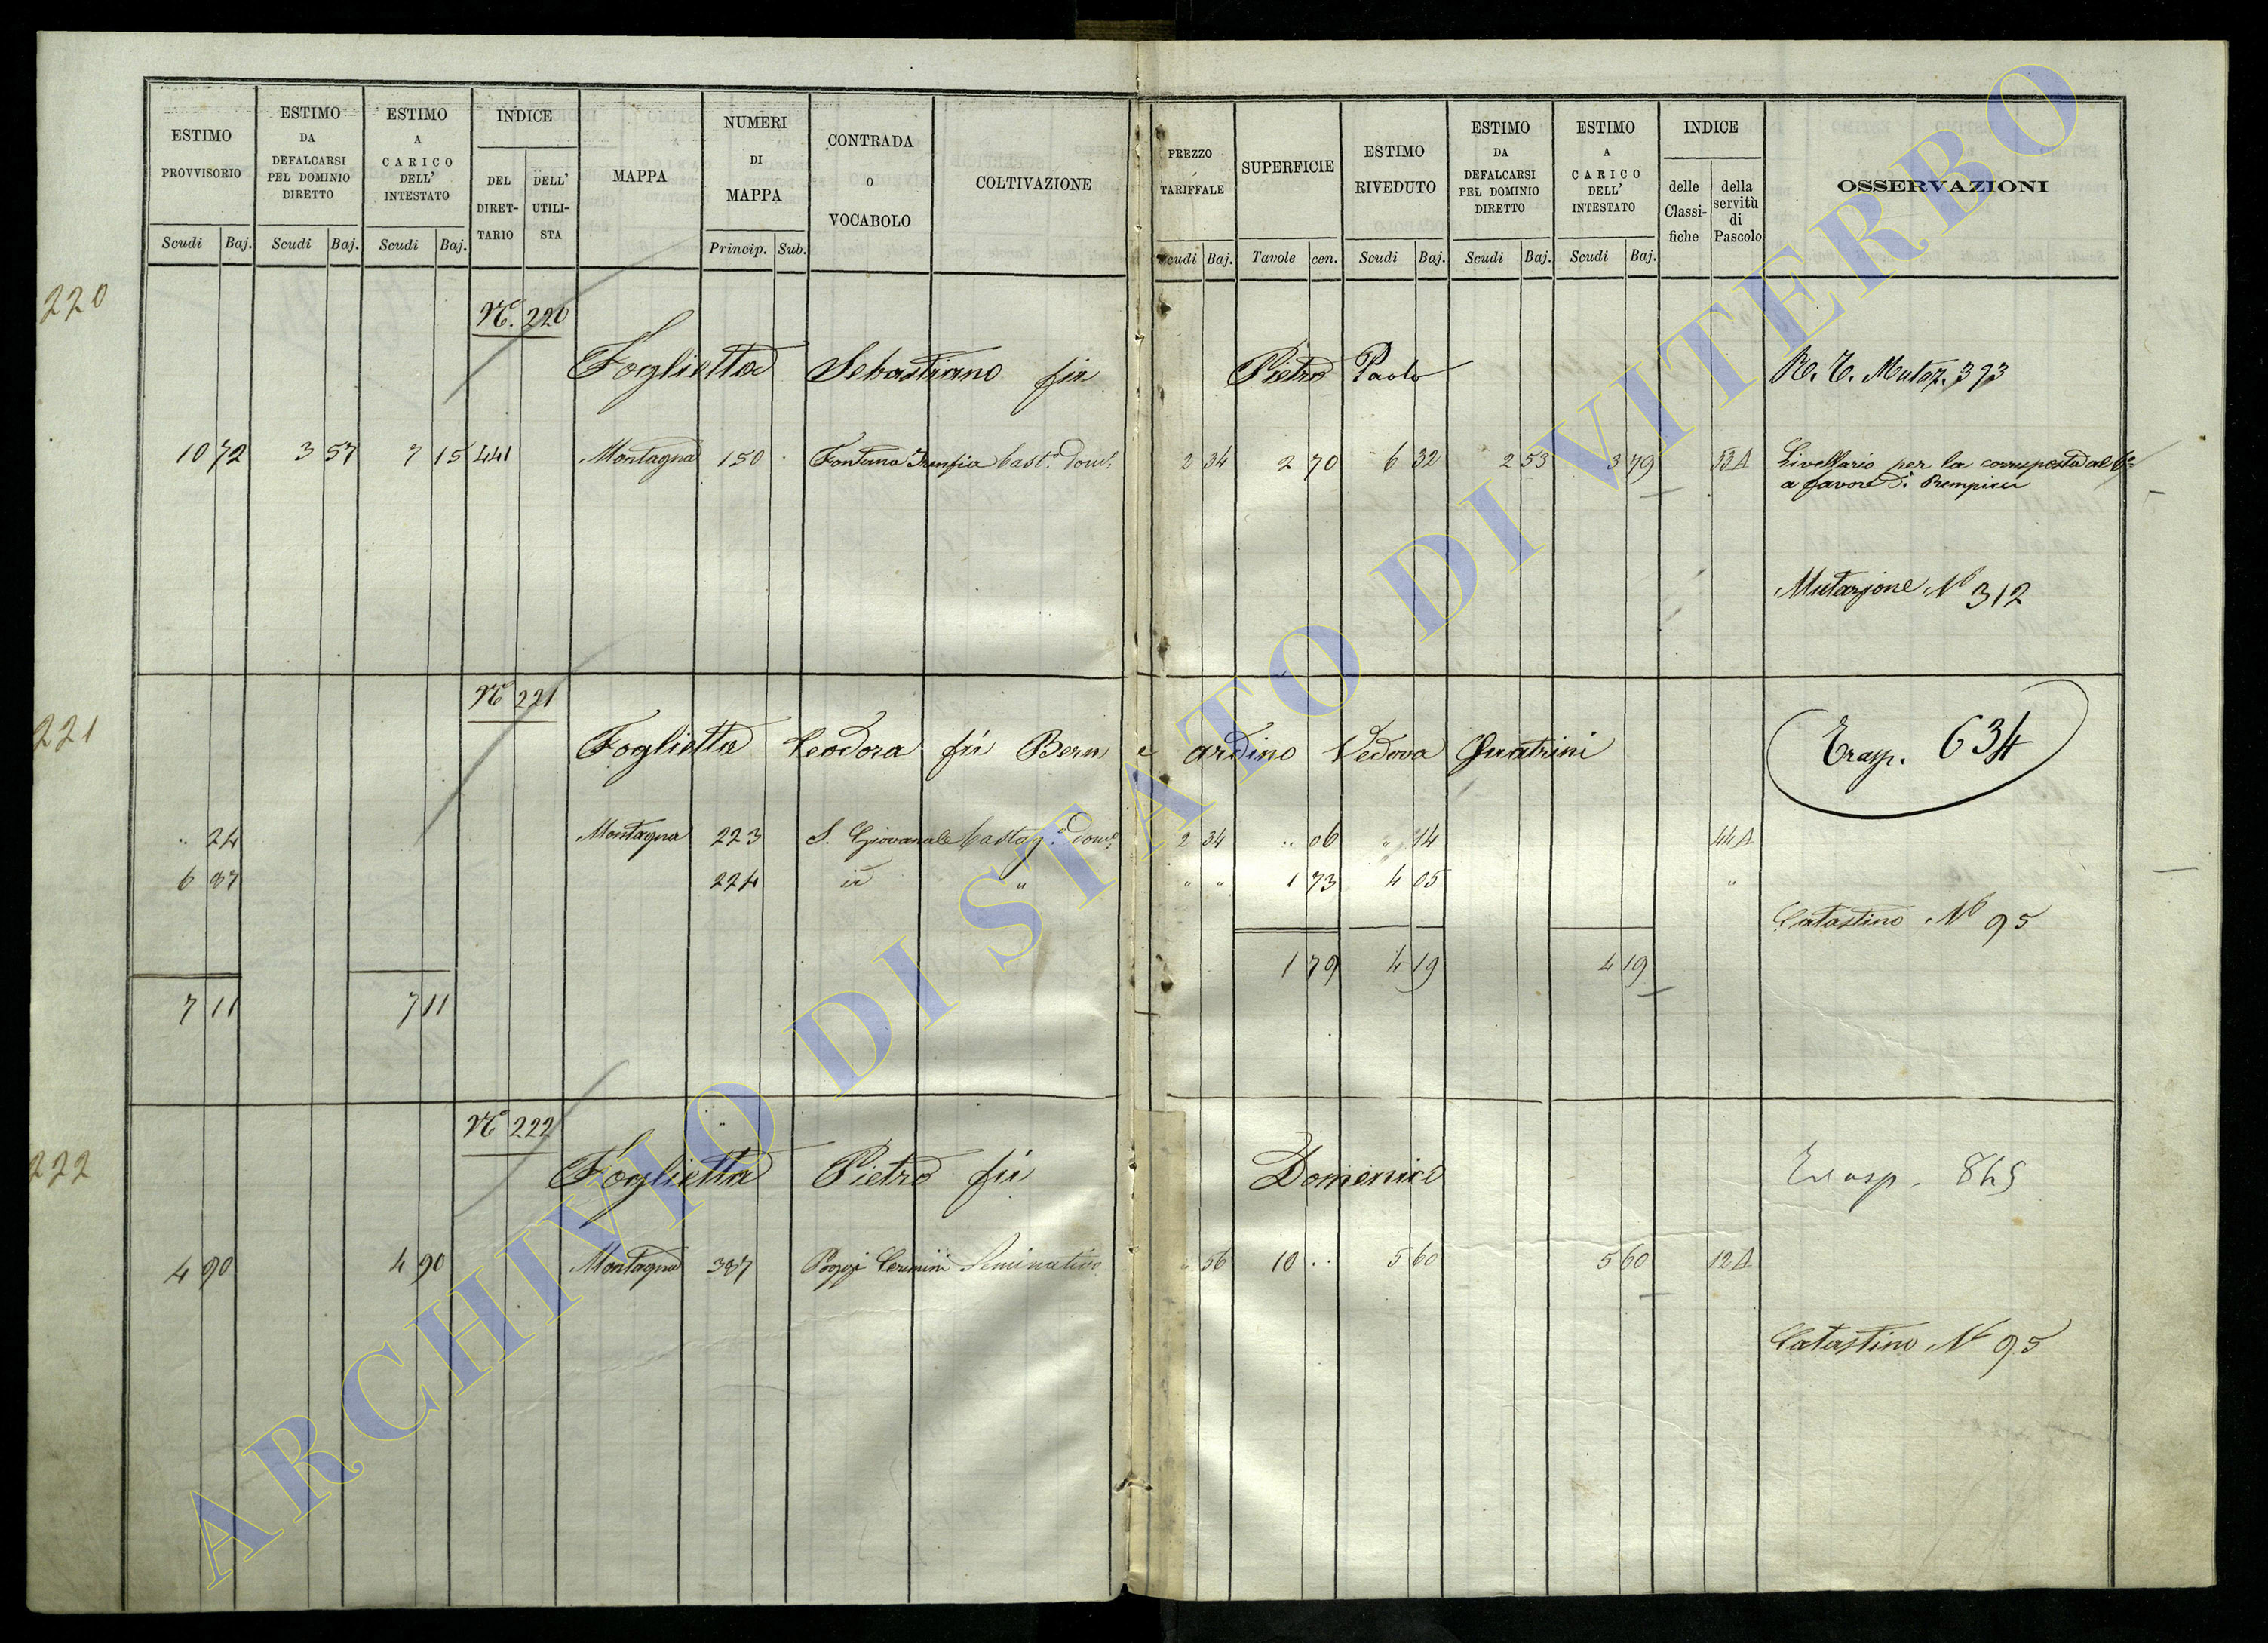 ESTIMO PROVVISORIO
ESTIMO DA DEFALCARSI PEL DOMINIO DIRETTO
ESTIMO A CARICO DELL' INTESTATO
INDICE
DEL DIRET-TARIO
DELL' UTILI-STA
MAPPA
NUMERI DI MAPPA
CONTRADA O VOCABOLO
COLTIVAZIONE
PREZZO TARIFFALE
SUPERFICIE
ESTIMO RIVEDUTO
ESTIMO DA DEFALCARSI PEL DOMINIO DIRETTO
ESTIMO A CARICO DELL' INTESTATO
INDICE
delle Classi-fiche
della servitù di Pascolo
OSSERVAZIONI
Scudi Baj. Scudi Baj. Scudi Baj. Princip. Sub. Scudi Baj. Tavole cen. Scudi Baj. Scudi Baj. Scudi Baj.
220
N.º 220
Foglietta Sebastiano fu Pietro Paolo
Mutaz. 393
10 72 3 57 7 15 441 Montagna 150 Fontana Cast.º dom.º 2 34 2 70 6 32 2 53 3 79 53 A Livellario per la corrisposta al 6º
a favore di
Mutazione Nº 312
221
Nº 221
Foglietta Teodora fu Bernardino Vedova Quatrini
Trasp. 634
" 24 Montagna 223 S. Giovenale Castag.º dom.º 2 34 " 06 " 14 44 A
6 87 224 id " " " 1 73 4 05 "
Catastino Nº 95
1 79 4 19 4 19
7 11 7 11
222
Nº 222
Foglietta Pietro fu Domenico
Trasp. 845
4 90 4 90 Montagna 387 Poggi Cermini Seminativo " 56 10 " 5 60 5 60 12 A
Catastino Nº 95
ARCHIVIO DI STATO DI VITERBO